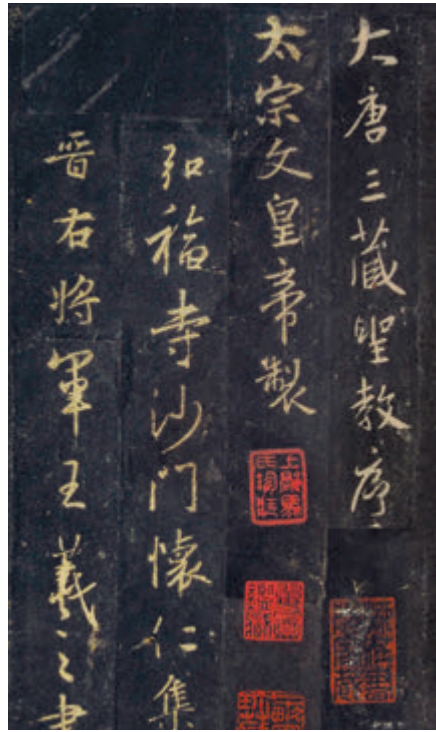 大唐三蔵聖教序
太宗文皇帝製
弘福寺沙门懐仁集
晋右将軍王羲之書